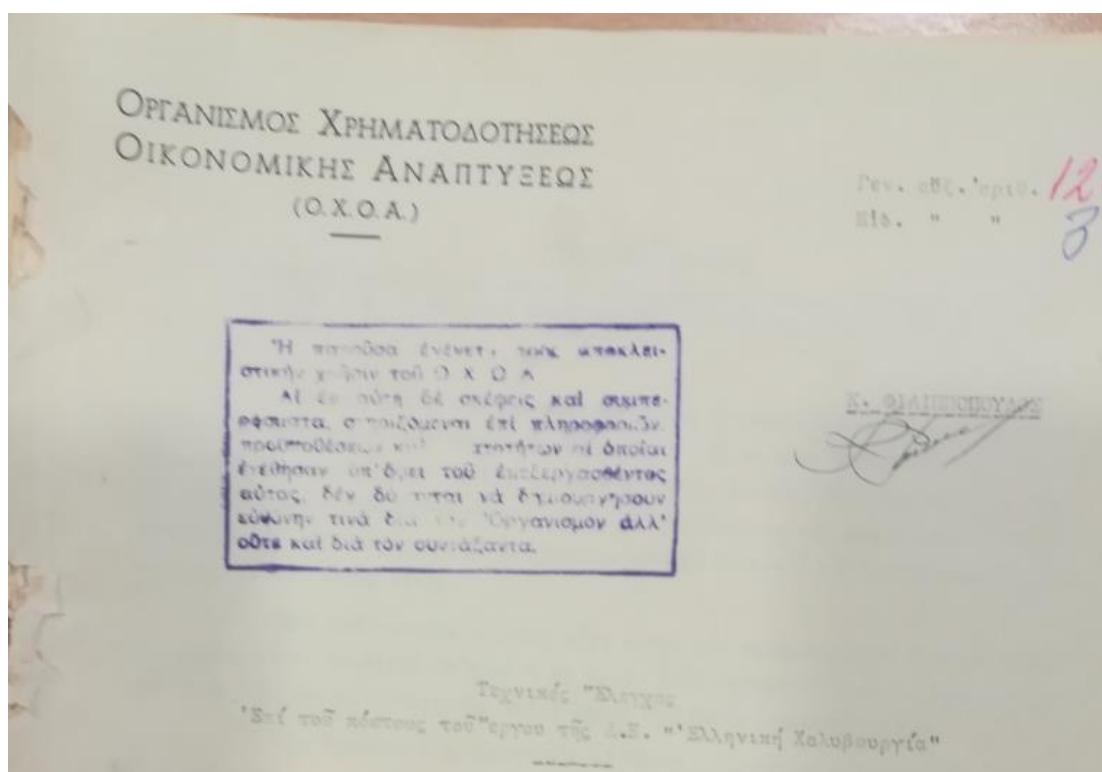 ΟΡΓΑΝΙΣΜΟΣ ΧΡΗΜΑΤΟΔΟΤΗΣΕΩΣ
ΟΙΚΟΝΟΜΙΚΗΣ ΑΝΑΠΤΥΞΕΩΣ
(Ο.Χ.Ο.Α.)
Γεν. αὔξ. ἀριθ. 12
Εἰδ. " " 3
Ἡ παροῦσα ἐγένετο πρὸς ἀποκλει-
στικὴν χρῆσιν τοῦ Ο Χ Ο Α
Αἱ ἐν αὐτῇ δὲ σκέψεις καὶ συμπε-
ράσματα, στηριζόμεναι ἐπὶ πληροφοριῶν,
προϋποθέσεων καὶ αἱ ὁποῖαι
ἐτέθησαν ὑπ' ὄψει τοῦ ἐπεξεργασθέντος
αὐτὰς, δὲν δύνανται νὰ δημιουργήσουν
εὐθύνην τινὰ διὰ τὸν Ὀργανισμὸν ἀλλ'
οὔτε καὶ διὰ τὸν συντάξαντα.
Κ. ΦΙΛΙΠΠΟΠΟΥΛΟΣ
Τεχνικός Ἔλεγχος
Ἐπί τοῦ κόστους τοῦ ἔργου τῆς Α.Ε. "Ἑλληνική Χαλυβουργία"